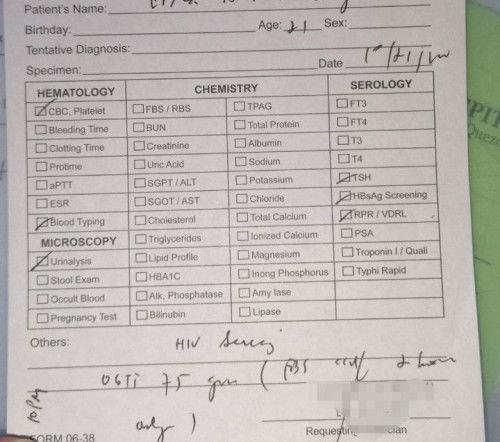 Patient's Name:
Birthday: Age: 21 Sex:
Tentative Diagnosis:
Specimen: Date
HEMATOLOGY CHEMISTRY SEROLOGY
CBC, Platelet FBS / RBS TPAG FT3
Bleeding Time BUN Total Protein FT4
Clotting Time Creatinine Albumin T3
Protime Uric Acid Sodium T4
aPTT SGPT / ALT Potassium TSH
ESR SGOT / AST Chloride HBsAg Screening
Blood Typing Cholesterol Total Calcium RPR / VDRL
MICROSCOPY Triglycerides Ionized Calcium PSA
Urinalysis Lipid Profile Magnesium Troponin I / Quali
Stool Exam HBA1C Inong Phosphorus Typhi Rapid
Occult Blood Alk, Phosphatase Amy lase
Pregnancy Test Bilinubin Lipase
Others: HIV
75 gm ( FBS 2 hour
only )
Requesting cian
FORM 06-38